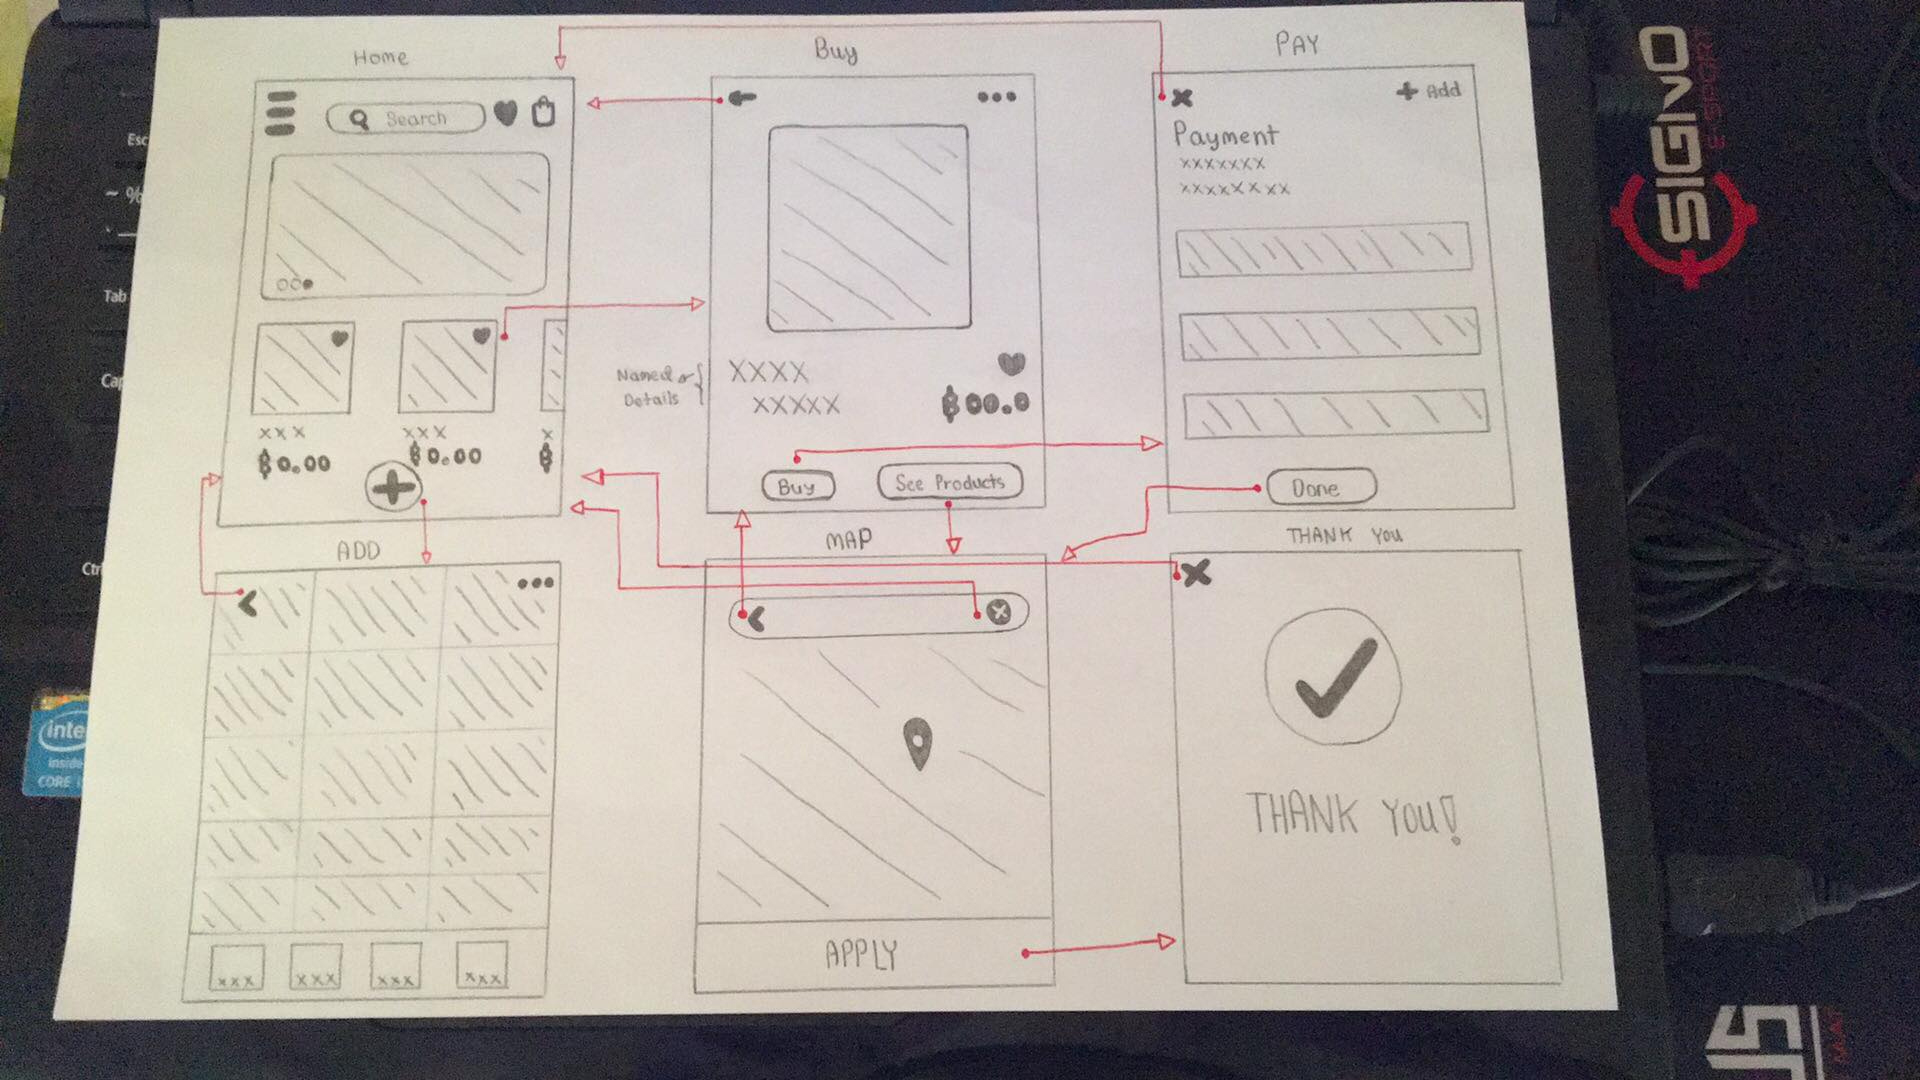 Home
Search
xxx
฿0.00
xxx
฿0.00
x
฿
Buy
Named or
Details
XXXX
XXXXX
฿00.0
Buy
See Products
PAY
+ Add
Payment
xxxxxxx
xxxxxxxx
Done
ADD
xxx
xxx
xxx
xxx
MAP
APPLY
THANK YOU
THANK YOU!
Esc
~ %
Tab
Cap
Ctr
inte
inside
CORE i
SIGNO
E-SPORT